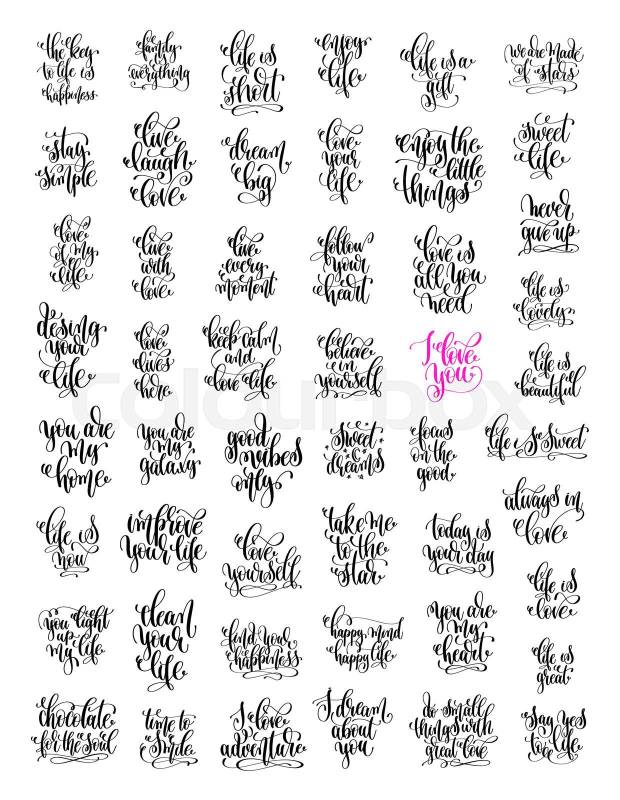 the key
to life is
happiness
family
is
everything
life is
short
enjoy
life
life is a
gift
we are made
of stars
stay
simple
live
laugh
love
dream
big
love
your
life
enjoy the
little
things
sweet
life
love
of my
life
live
with
love
live
every
moment
follow
your
heart
love is
all you
need
never
give up
life is
lovely
desing
your
life
love
lives
here
keep calm
and
love life
believe
in
yourself
I love
you
life is
beautiful
colourbox
you are
my
home
you are
my
galaxy
good
vibes
only
sweet
dreams
focus
on the
good
life is so sweet
life is
now
improve
your life
love
yourself
take me
to the
star
today is
your day
always in
love
life is
love
you light
up
my life
clean
your
life
find your
happiness
happy mind
happy life
you are
my
heart
life is
great
chocolate
for the soul
time to
smile
I love
adventure
I dream
about
you
do small
things with
great love
say yes
to life